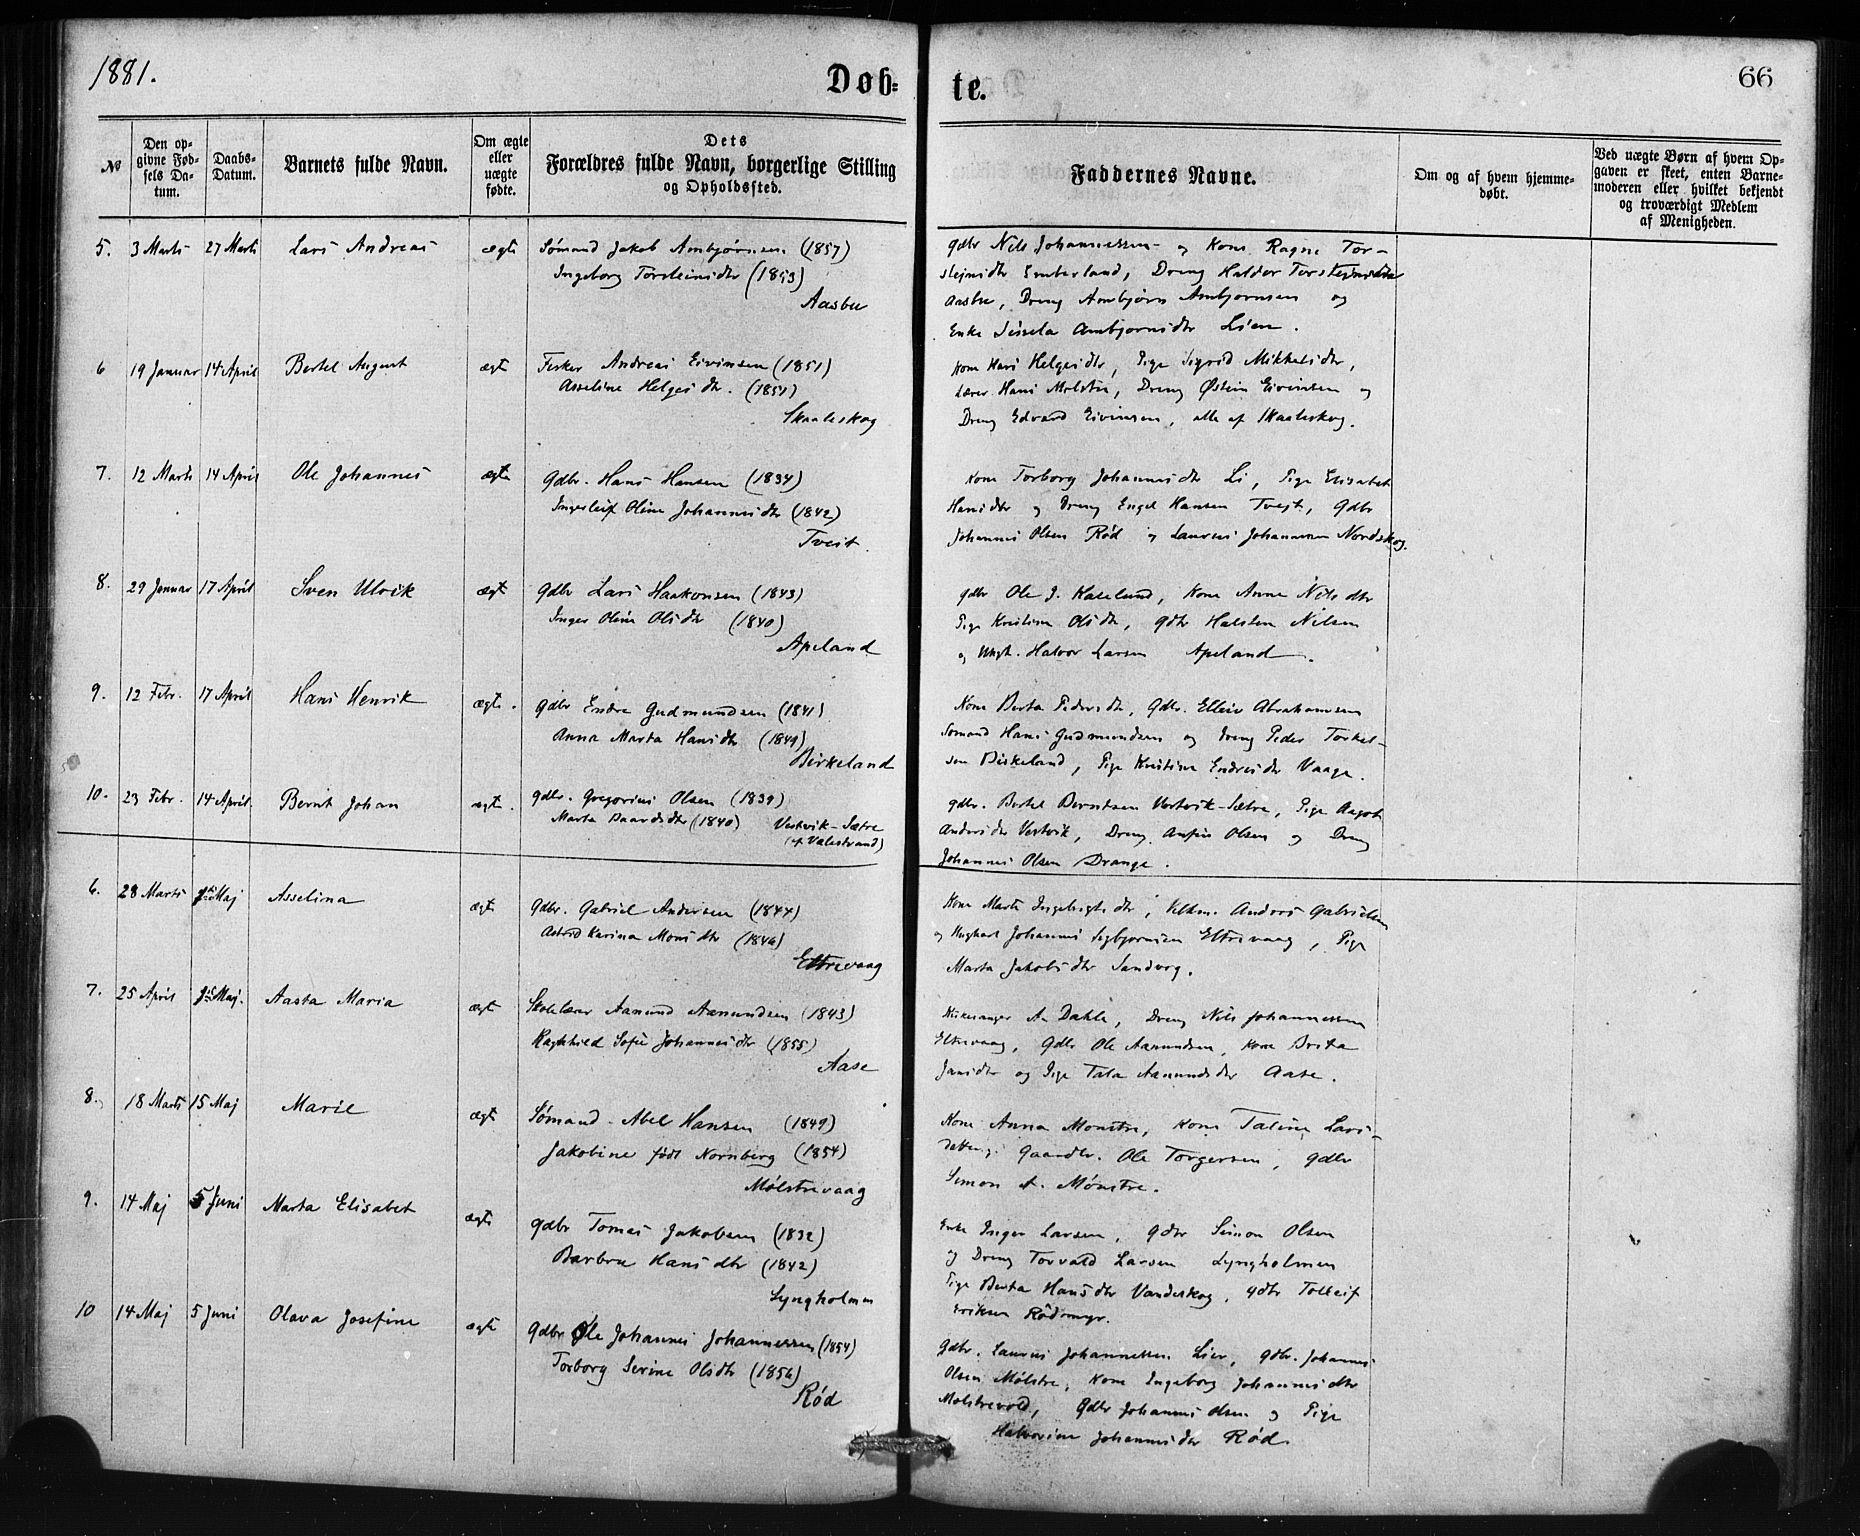 1881.
Døb=
te.
66
No
Den op-
givne Fød-
sels Da-
tum.
Daabs-
Datum.
Barnets fulde Navn.
Om ægte
eller
uægte
fødte.
Dets
Forældres fulde Navn, borgerlige Stilling
og Opholdssted.
Faddernes Navne.
Om og af hvem hjemme-
døbt.
Ved uægte Børn af hvem Op-
gaven er skeet, enten Barne-
moderen eller hvilket bekjendt
og troværdigt Medlem
af Menigheden.
5. 3 Marts 27 Marts Lars Andreas ægte Sømand Jakob Ambjørnsen (1857)
Ingeborg Torsteinsdtr (1853)
Aasbu
Gdbr Nils Johannessen og Kone Ragne Tor-
stejnsdtr Emberland, Dreng Haldor
Aasbu, Dreng Ambjørn Ambjørnsen og
Enke Sissela Ambjørnsdtr Lien.
6 19 Januar 14 April Bertel August ægte Fisker Andreas Eivinsen (1851)
Asseline Helgesdtr. (1851)
Skaaleskog
Kone Kari Helgesdtr, Pige Sigrid Mikkelsdtr,
Lærer Hans Molstre, Dreng Østein Eivinsen og
Dreng Edvard Eivinsen, alle af Skaaleskog.
7. 12 Marts 14 April Ole Johannes ægte Gdbr. Hans Hansen (1834)
Ingerleif Oline Johannesdtr (1842)
Tveit.
Kone Torborg Johannesdtr Li, Pige Elisabet
Hansdtr og Dreng Engel Hansen Tvejt, Gdbr
Johannes Olsen Rød og Laurus Johannessen Nordskog.
8. 29 Januar 17 April Sven Ulrik ægte Gdbr Lars Haakonsen (1843)
Inger Oline Olsdtr (1840)
Apeland
Gdbr Ole J. Kaselund, Kone Anne Nilsdtr
Pige Kristine Olsdtr, Gdbr Halsten Nilsen
og Ungk. Halvor Larsen Apeland.
9. 12 Febr. 17 April Hans Henrik ægte. Gdbr Endre Gudmundsen (1841)
Anna Marta Hansdtr (1849)
Birkeland
Kone Berta Pedersdtr, Gdbr. Elliv Abrahamsen
Sømand Hans Gudmundsen og Dreng Peder Torkel-
sen Birkeland, Pige Kristine Endresdtr Vaage.
10. 23 Febr. 14 April. Bernt Johan ægte. Gdbr. Gregorius Olsen (1839)
Marta Baardsdtr (1840) Vestvik-Sætre
(af Valestrand)
Gdbr. Bertel Berntsen Vestvik-Sætre, Pige Aagot
Andersdtr Vestvik, Dreng Anfin Olsen og Dreng
Johannes Olsen Drange.
6. 28 Marts Maj Asselina ægte Gdbr. Gabriel Andersen (1844)
Astrid Karina Monsdtr (1846)
Eltrevaag
Kone Marta Ingebrigtsdtr, Anders Gabrielsen
og Ungkarl Johannes Sigbjørnsen Eltrevaag, Pige
Marta Jakobsdtr Sandvog.
7. 25 April Maj. Aasta Maria ægte Skolelærer Aamund Aamundsen (1843)
Ragnhild Sofie Johannesdtr (1855)
Aase
Kirkesanger A. Dahle, Dreng Nils Johannessen
Eltrevaag, Gdbr Ole Aamundsen, Kone Brita
Jansdtr og Pige Tala Aamundsdtr Aase.
8. 18 Marts 15 Maj Marie ægte Sømand Abel Hansen (1849)
Jakobine født Nornberg (1854)
Mølstrevaag
Kone Anna Monstre, Kone Taline Lars-
datter, Gaardbr. Ole Torgersen, Gdbr
Simon A. Mønstre.
9. 14 Maj 5 Juni Marta Elisabet ægte Gdbr Tomas Jakobsen (1832)
Barbra Hansdtr (1842)
Lyngholmen
Enke Inger Larsen, Gdbr Simon Olsen
og Dreng Torvald Larsen Lyngholmen
Pige Berta Hansdtr Vandeskog, Gdbr Tolleif
Eriksen Rødmyr.
10 14 Maj 5 Juni Olava Josefine ægte Gdbr Ole Johannes Johannessen (1854)
Torborg Serine Olsdtr (1856)
Rød
Gdbr. Laurus Johannessen Lier, Gdbr. Johannes
Olsen Mølstre, Kone Ingeborg Johannesdtr
Molstrevold, Gdbr Johannes Olsen og Pige
Halvorine Johannesdtr Rød.